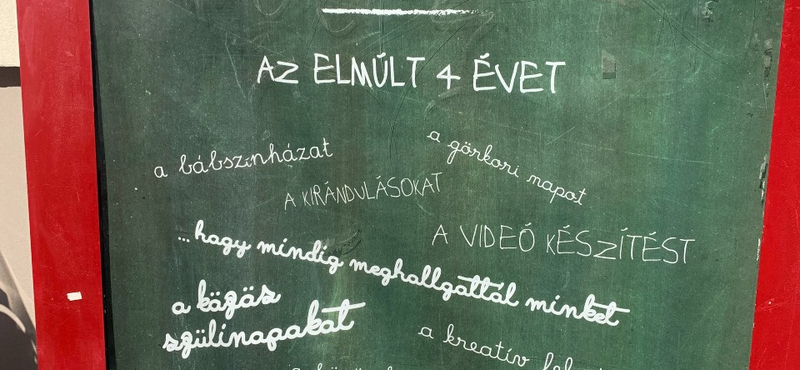 AZ ELMÚLT 4 ÉVET
a bábszínházat
a görkori napot
A KIRÁNDULÁSOKAT
A VIDEÓ KÉSZÍTÉST
...hogy mindig meghallgattál minket
a közös
szülinapokat
a kreatív